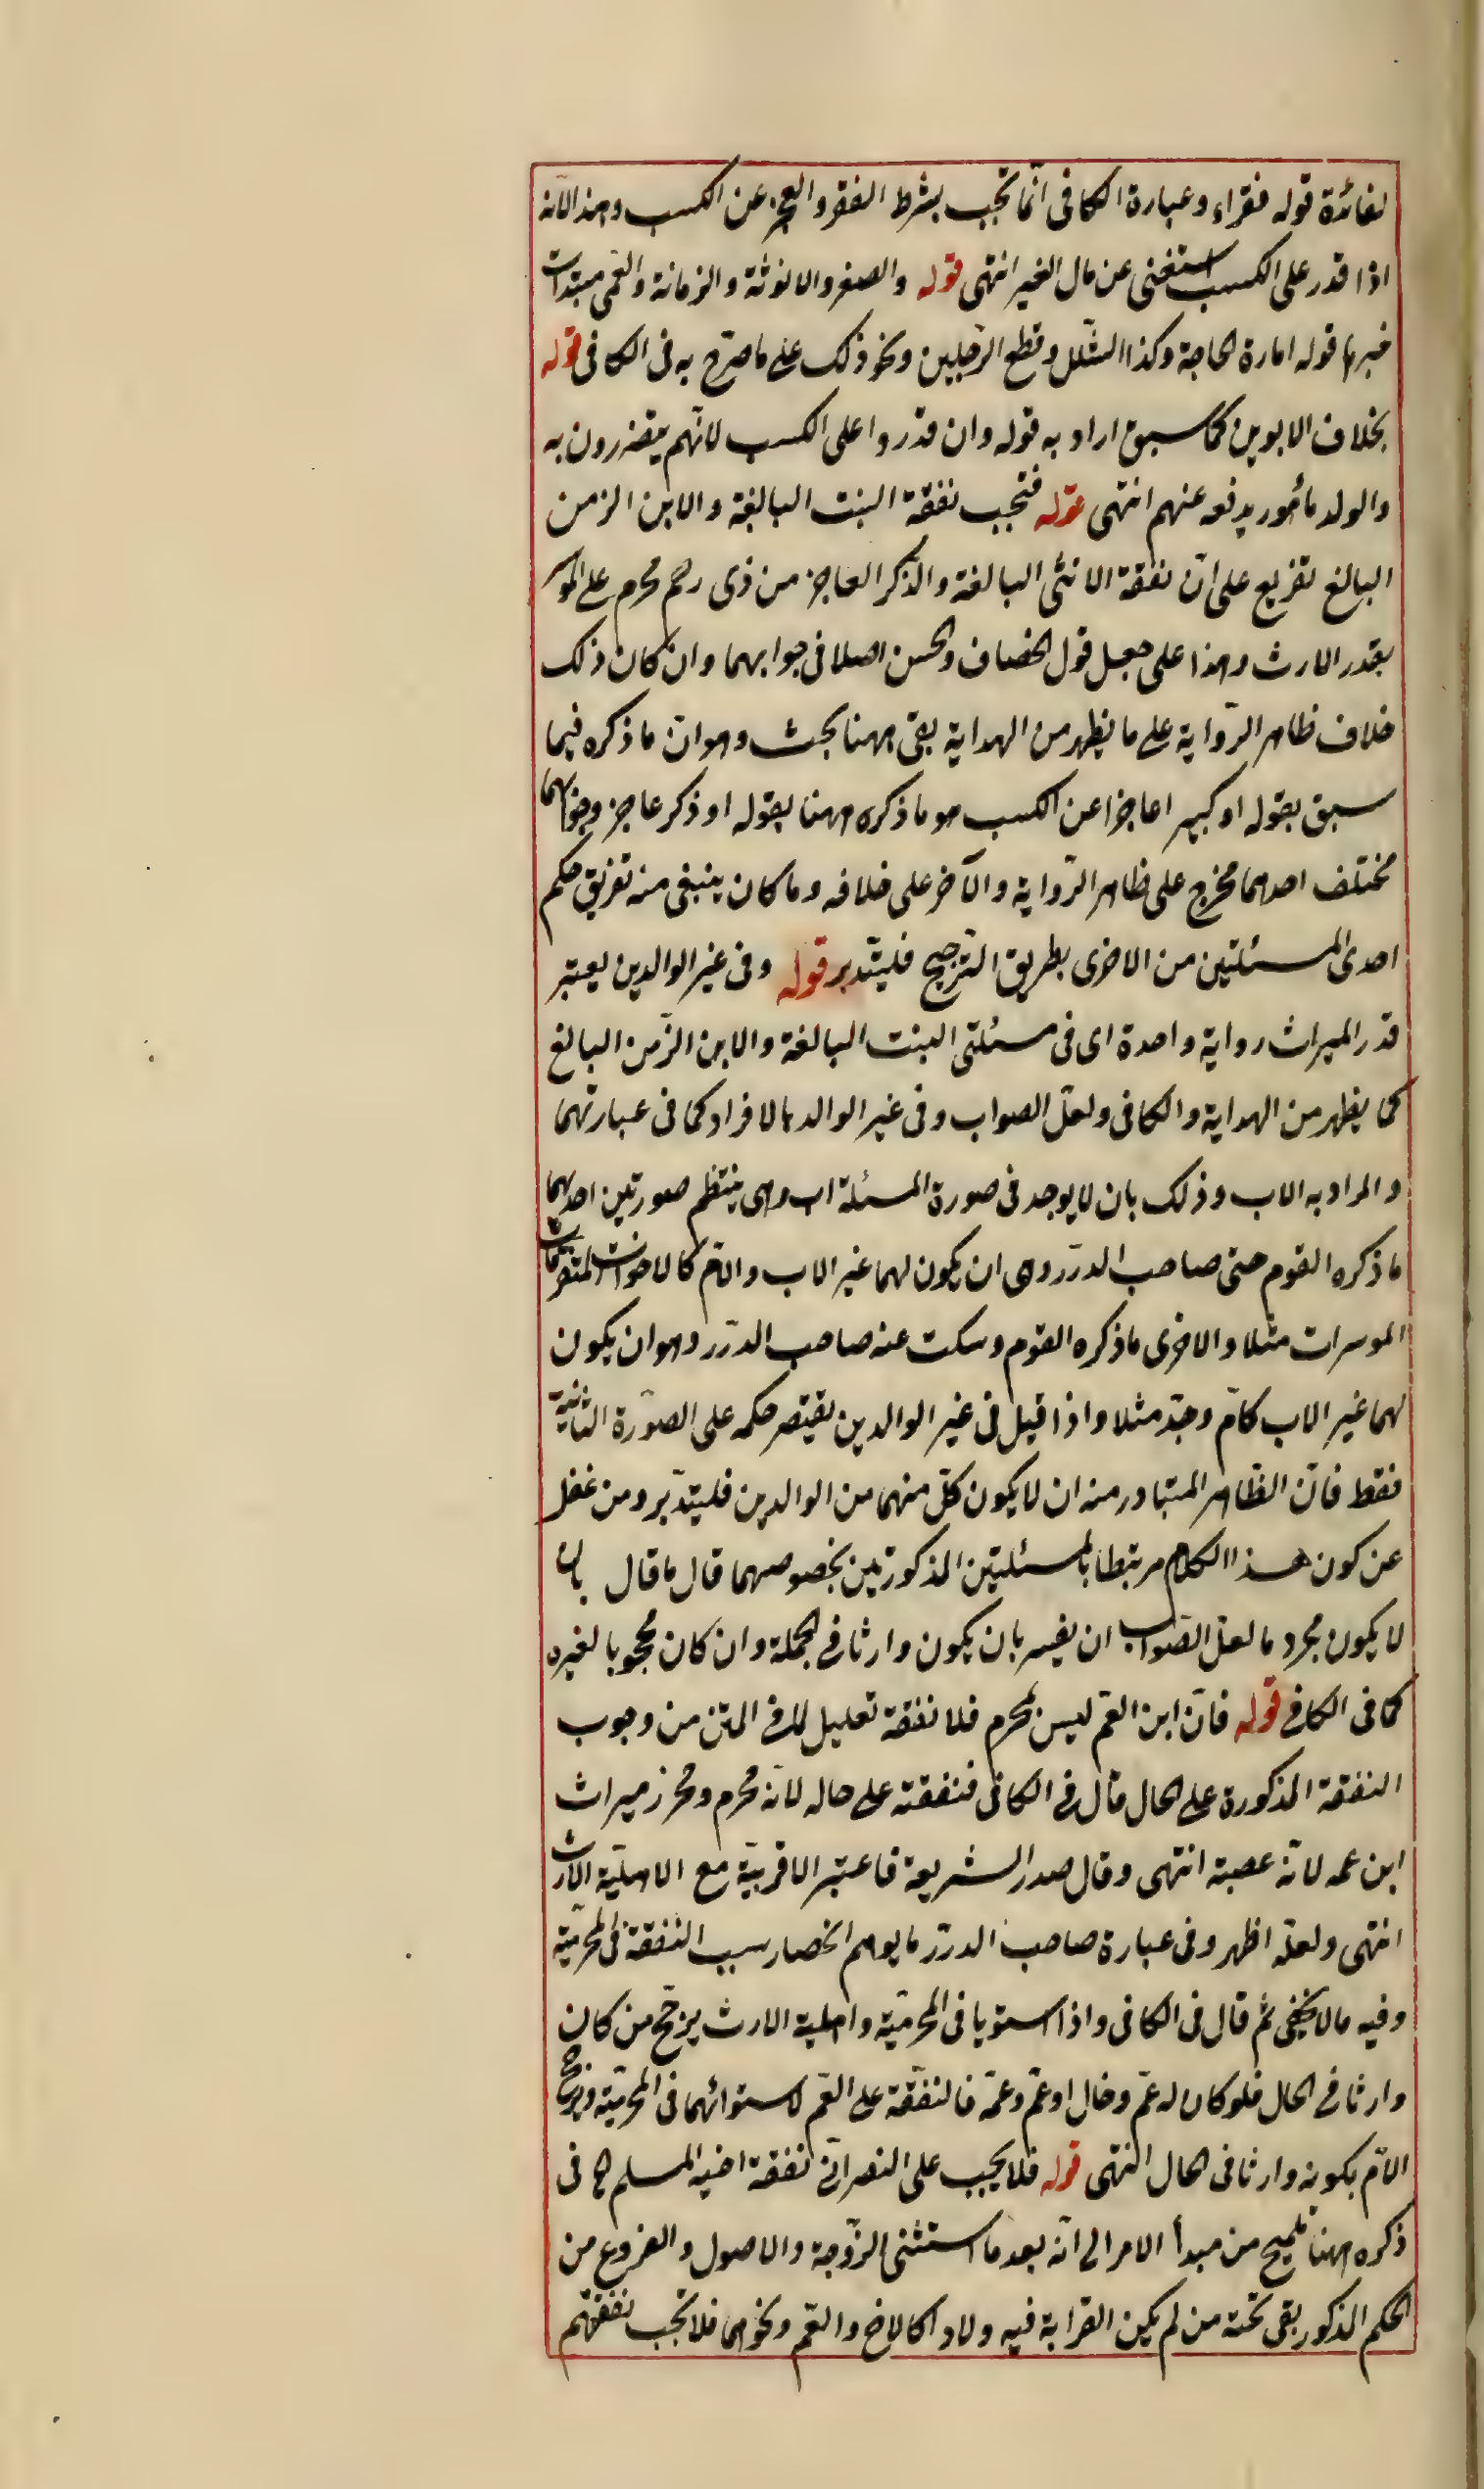 لفائدة قوله فقراء وعبارة الكافى انّما تجب بشرط الفقر والعجز عن الكسب وهذا لانّه
اذا قدر على الكسب استغنى عن مال الغير انتهى قوله والصغر والانوثة والزمانة والعمى مبتدأت
خبرها قوله امارة الحاجة وكذا الشّلل وقطع الرّجلين ونحو ذلك على ما صرّح به فى الكافى قوله
بخلاف الابوين كما سبق اراد به قوله وان قدروا على الكسب لانّهم يتضررون به
والولد مأمور بدفعه عنهم انتهى قوله فتجب نفقة البنت البالغة والابن الزمن
البالغ تفريع على انّ نفقة الانثى البالغة والذّكر العاجز من ذى رحم محرم على الموسر
بقدر الارث وهذا على جعل قول الخصاف والحسن اصلا فى جوابهما وان كان ذلك
خلاف ظاهر الرّواية على ما يظهر من الهداية بقى ههنا بحث وهو انّ ما ذكره فيما
سبق بقوله او كبيرا عاجزا عن الكسب هو ما ذكره ههنا بقوله او ذكر عاجز وجوابهما
مختلف احدهما مخرج على ظاهر الرّواية والآخر على خلافه وما كان ينبغى منه تفريق حكم
احدى المسئلتين من الاخرى بطريق التّرجيح فليتّدبر قوله وفى غير الوالدين يعتبر
قدر الميراث رواية واحدة اى فى مسئلتى البنت البالغة والابن الزّمن البالغ
كما يظهر من الهداية والكافى ولعلّ الصواب وفى غير الوالد بالافراد كما فى عبارتهما
والمراد به الاب وذلك بان لا يوجد فى صورة المسئلة اب وهى ينتظم صورتين احديهما
ما ذكره القوم حتى صاحب الدرّر وهى ان يكون لهما غير الاب والامّ كالاخوات المتفرّقات
الموسرات مثلا والاخرى ما ذكره القوم وسكت عنه صاحب الدرّر وهو ان يكون
لهما غير الاب كامّ وجدّ مثلا واذا قيل فى غير الوالدين يقتصر حكمه على الصّورة الثانية
فقط فانّ الظّاهر المتبادر منه ان لا يكون كلّ منهما من الوالدين فليتدّبر ومن غفل
عن كون هذا الكلام مرتبطا بالمسئلتين المذكورتين بخصوصهما قال ما قال بان
لا يكون مجرد ما لعلّ الصّواب ان يفسر بان يكون وارثا فى الجملة وان كان محجوبا لغيره
كما فى الكافى قوله فانّ ابن العمّ ليس بمحرم فلا نفقة تعليل لما فى المتن من وجوب
النفقة المذكورة على الحال قال فى الكافى فنفقته على خاله لانّه محرم ومحرز ميراث
ابن عمه لانّه عصبة انتهى وقال صدر الشريعة فاعتبر الاقربيّة مع الاهليّة الارث
انتهى ولعلّه اظهر وفى عبارة صاحب الدرّر ما يوهم انحصار سبب النّفقة فى المحرميّة
وفيه ما لا يخفى ثمّ قال فى الكافى واذا استويا فى المحرميّة واهلية الارث يرجّح من كان
وارثا فى الحال فلو كان له عمّ وخال او عمّ وعمّة فالنّفقة على العمّ لاستوائهما فى المحرميّة ويرجّح
الامّ بكونه وارثا فى الحال انتهى قوله فلا يجب على النصرانّى نفقة اخيه المسلم كما فى
ذكره ههنا تلميح من مبدأ الامر الى انّه بعد ما استثنى الزّوجة والاصول والفروع من
الحكم المذكور بقى تحته من لم يكن القرابة فيه ولادا كالاخ والعمّ ونحوهما فلا تجب نفقتهم